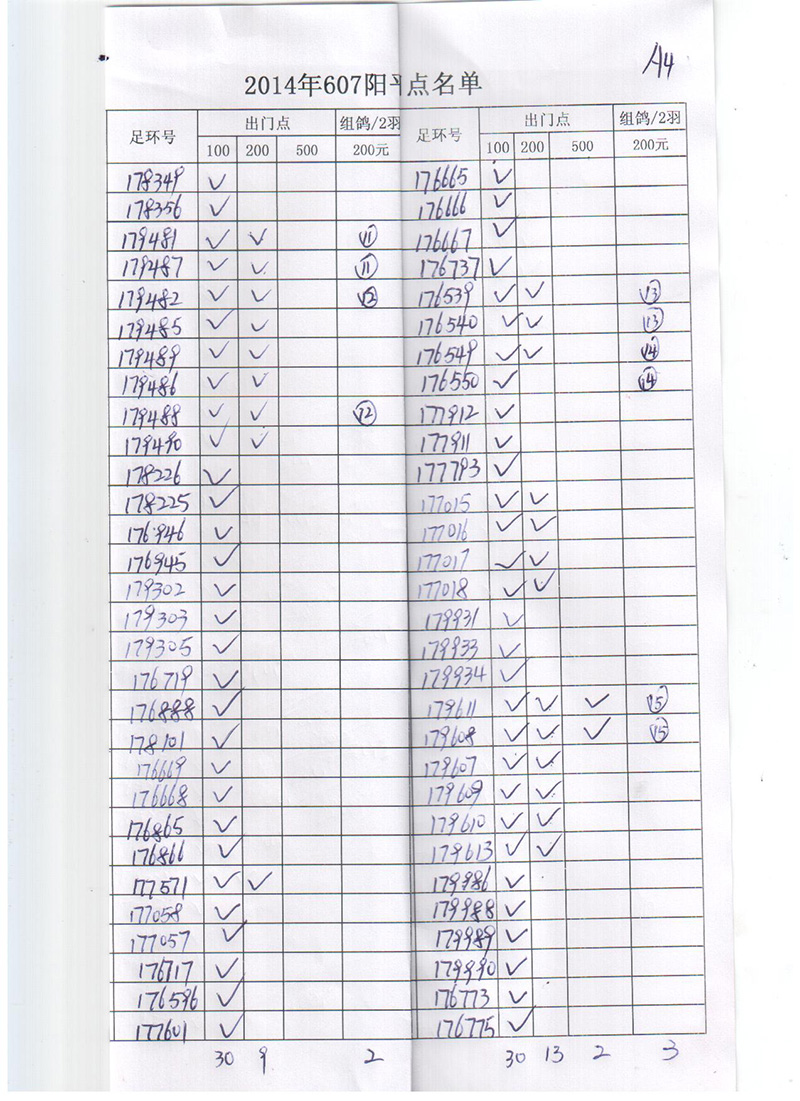 A4
2014年607阳平点名单
足环号 出门点 组鸽/2羽 足环号 出门点 组鸽/2羽
100 200 500 200元 100 200 500 200元
178349 ✓ 176665 ✓
178356 ✓ 176666 ✓
179481 ✓ ✓ 11 176667 ✓
179487 ✓ ✓ 11 176737 ✓
179482 ✓ ✓ 12 176539 ✓ ✓ 13
179485 ✓ ✓ 176540 ✓ ✓ 13
179489 ✓ ✓ 176549 ✓ ✓ 14
179486 ✓ ✓ 176550 ✓ 14
179488 ✓ ✓ 12 177912 ✓
179490 ✓ ✓ 177911 ✓
178226 ✓ 177793 ✓
178225 ✓ 177015 ✓ ✓
176946 ✓ 177016 ✓ ✓
176945 ✓ 177017 ✓ ✓
179302 ✓ 177018 ✓ ✓
179303 ✓ 179931 ✓
179305 ✓ 179933 ✓
176719 ✓ 179934 ✓
176888 ✓ 179611 ✓ ✓ ✓ 15
178101 ✓ 179608 ✓ ✓ ✓ 15
176669 ✓ 179607 ✓ ✓
176668 ✓ 179609 ✓ ✓
176865 ✓ 179610 ✓ ✓
176866 ✓ 179613 ✓ ✓
177571 ✓ ✓ 179986 ✓
177058 ✓ 179988 ✓
177057 ✓ 179989 ✓
176717 ✓ 179990 ✓
176596 ✓ 176773 ✓
177601 ✓ 176775 ✓
30 9 2 30 13 2 3